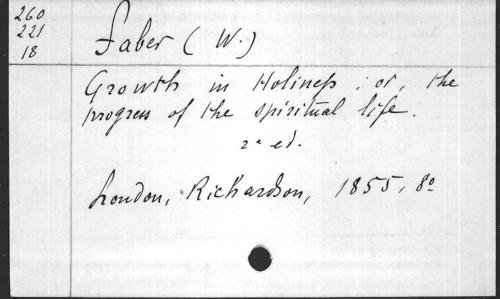 260
221
18
Faber (W.)
Growth in Holiness; or, the
progress of the spiritual life.
2ª ed.
London, Richardson, 1855, 8º